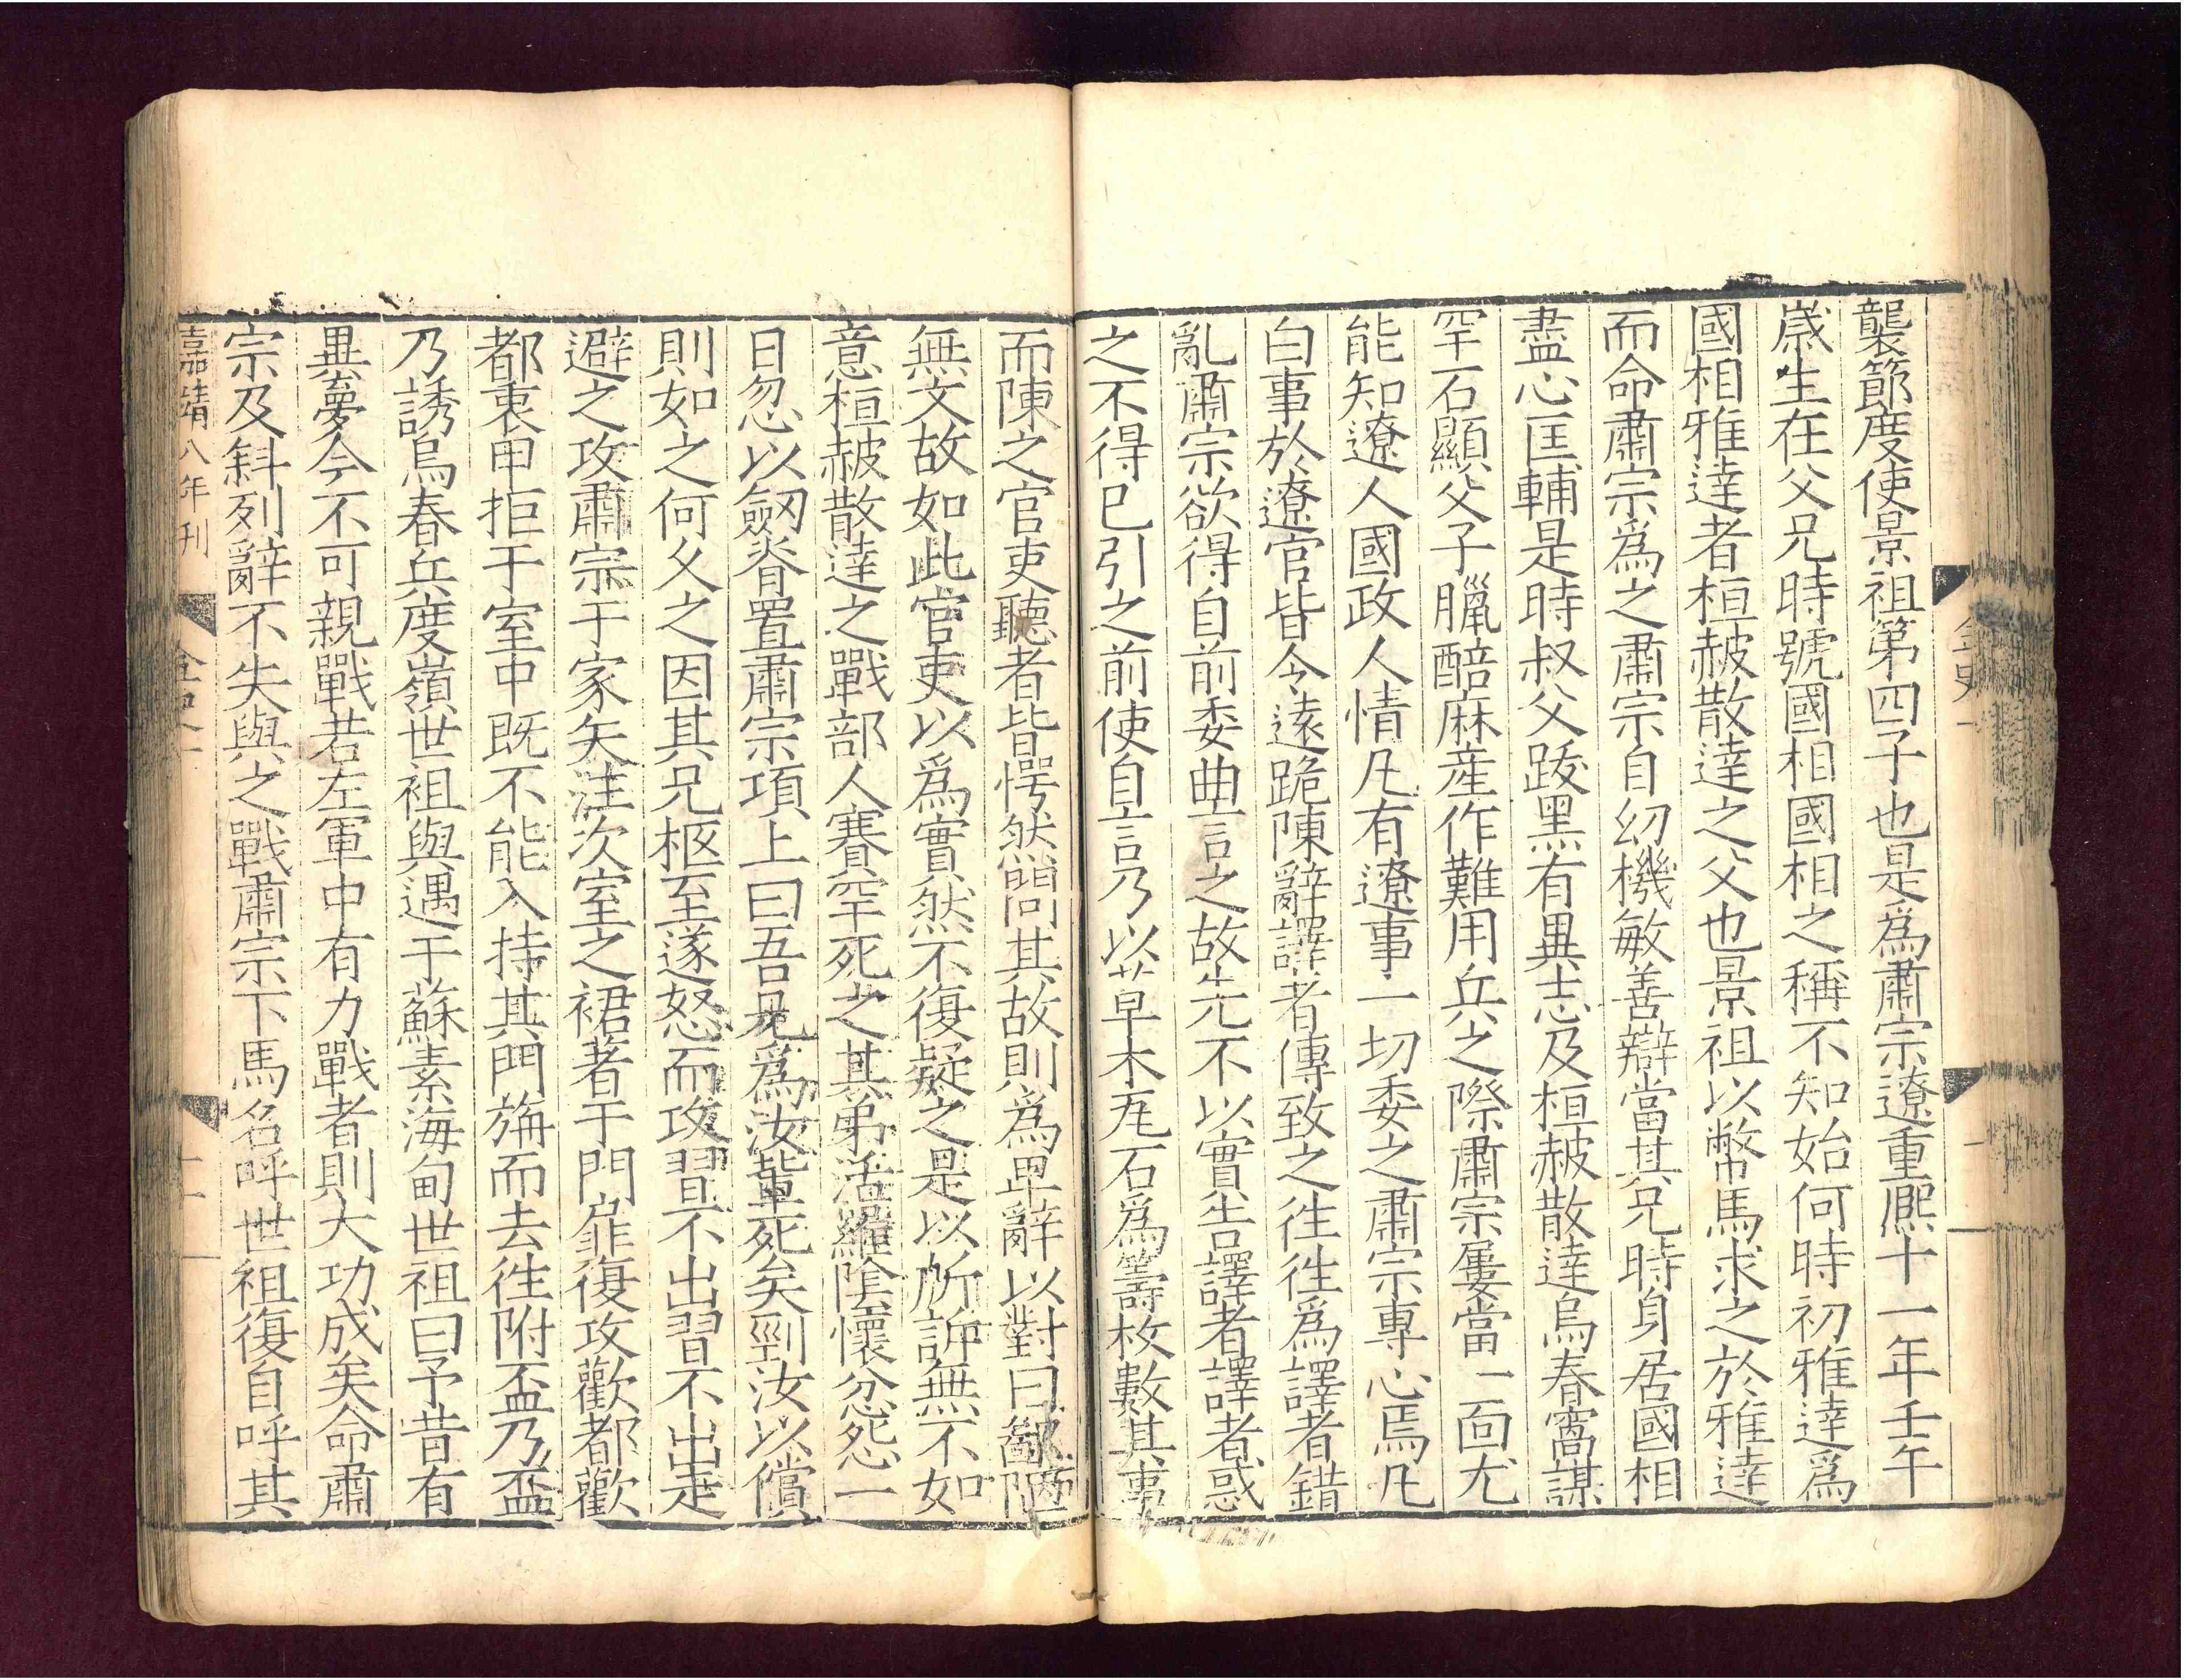 襲節度使景祖第四子也是爲肅宗遼重熈十一年壬午
嵗生在父兄時號國相國相之稱不知始何時初雅達爲
國相雅達者桓赧散達之父也景祖以幣馬求之於雅達
而命肅宗爲之肅宗自幼機敏善辯當其兄時身居國相
盡心匡輔是時叔父跋黑有異志及桓赧散達烏春窩謀
罕石顯父子臘醅麻産作難用兵之際肅宗屢當一面尤
能知遼人國政人情凡有遼事一切委之肅宗專心焉凡
白事於遼官皆令遠跪陳辭譯者傳致之徃徃爲譯者錯
亂肅宗欲得自前委曲言之故先不以實告譯者譯者惑
之不得已引之前使自言乃以草木瓦石爲籌枚數其事
而陳之官吏聽者皆愕然問其故則爲卑辭以對曰鄙陋
無文故如此官吏以爲實然不復疑之是以所訴無不如
意桓赧散達之戰部人賽罕死之其弟活羅隂懷忿怨一
日忽以劒脊置肅宗項上曰吾兄爲汝輩死矣剄汝以償
則如之何久之因其兄柩至遂怒而攻習不出習不出走
避之攻肅宗于家矢注次室之裙著于門扉復攻歡都歡
都衷甲拒于室中既不能入持其門旃而去徃附盃乃盃
乃誘烏春兵度嶺世祖與遇于蘇素海甸世祖曰予昔有
異夢今不可親戰若左軍中有力戰者則大功成矣命肅
宗及斜列辭不失與之戰肅宗下馬名呼世祖復自呼其
嘉靖八年刊